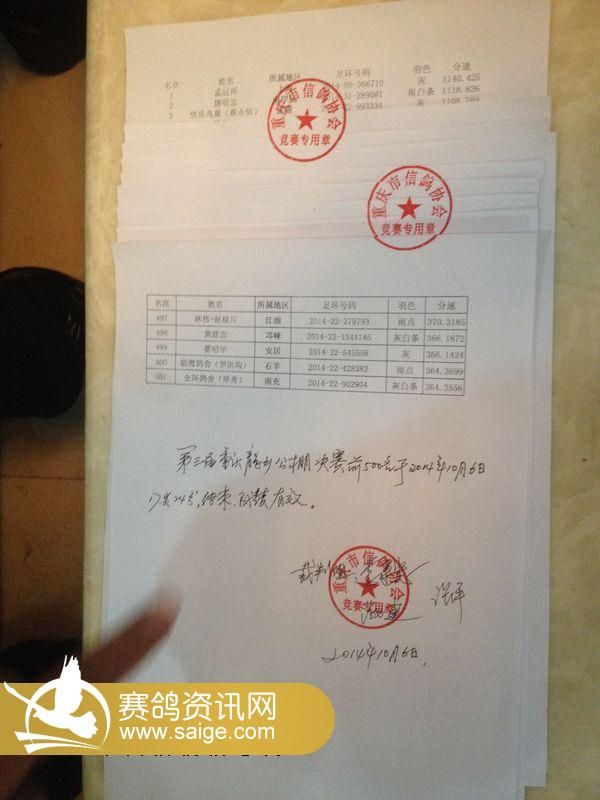 名次 姓名 所属地区 足环号码 羽色 分速
1 孟运祥 14-09-366710 灰 1140.425
2 唐明忠 31-289081 雨白条 1118.826
3 快乐鸟巢（蔡永恒） 2-993334 灰 1108.789
重庆市信鸽协会
竞赛专用章
重庆市信鸽协会
竞赛专用章
名次 姓名 所属地区 足环号码 羽色 分速
497 林伟+赵福川 江油 2014-22-279793 雨点 370.3185
498 黄建忠 邛崃 2014-22-1344145 灰白条 366.1872
499 昭华 安居 2014-22-545558 灰 366.1424
500 鸽舍（罗洪均） 石羊 2014-22-428382 雨点 364.3699
501 金环鸽舍（覃勇） 南充 2014-22-902904 灰白条 364.3556
第三届重庆 公棚决赛前500名于2014年10月6日
17点24分结束，成绩有效。
裁判组
重庆市信鸽协会
竞赛专用章
2014年10月6日
赛鸽资讯网
www.saige.com